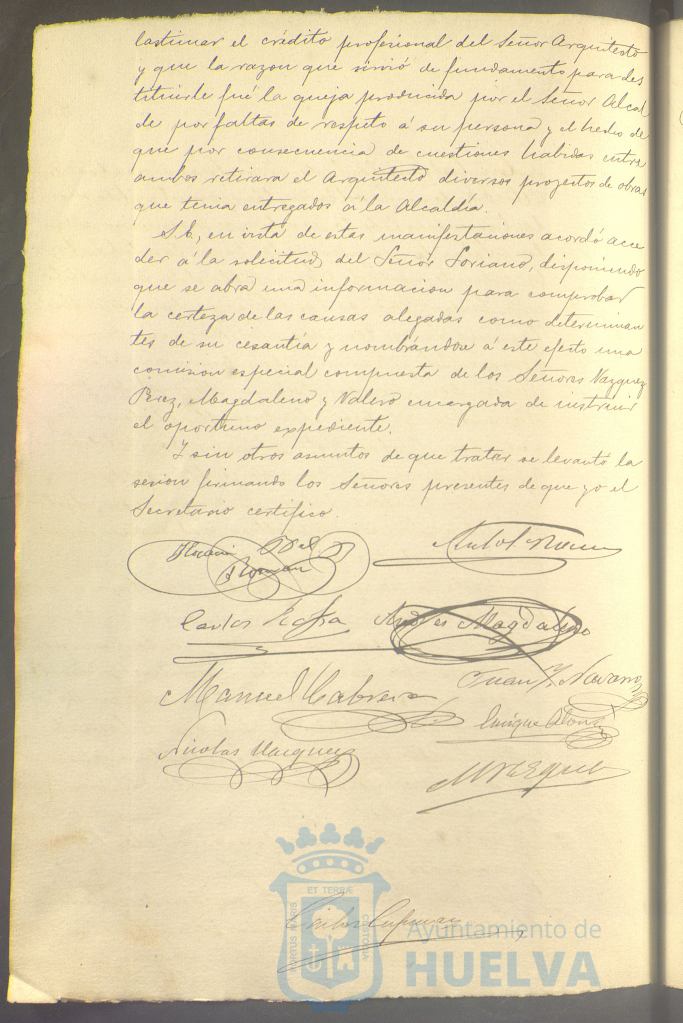 lastimar el crédito profesional del Señor Arquitecto
y que la razon que sirvió de fundamento para des
tituirle fué la queja producida por el Señor Alcal
de por faltas de respeto á su persona y el hecho de
que por consecuencia de cuestiones habidas entre
ambos retirara el Arquitecto diversos proyectos de obras
que tenia entregados á la Alcaldía.
S.E., en vista de estas manifestaciones acordó acce
der á la solicitud del Señor Soriano, disponiendo
que se abra una informacion para comprobar
la certeza de las causas alegadas como determinan
tes de su cesantía y nombrándose á este efecto una
comision especial compuesta de los Señores Vazquez
Perez, Magdaleno y Valero encargada de instruir
el oportuno expediente.
Y sin otros asuntos de que tratar se levantó la
sesion firmando los Señores presentes de que yo el
Secretario certifico.
Roman
Carlos Andres Magdaleno
Manuel Cabrera Juan Navarro
Enrique Alonso
Nicolas Vazquez
M Vazquez
ET TERRÆ
PORTUS MARIS
CUSTODIA
Ayuntamiento de
HUELVA